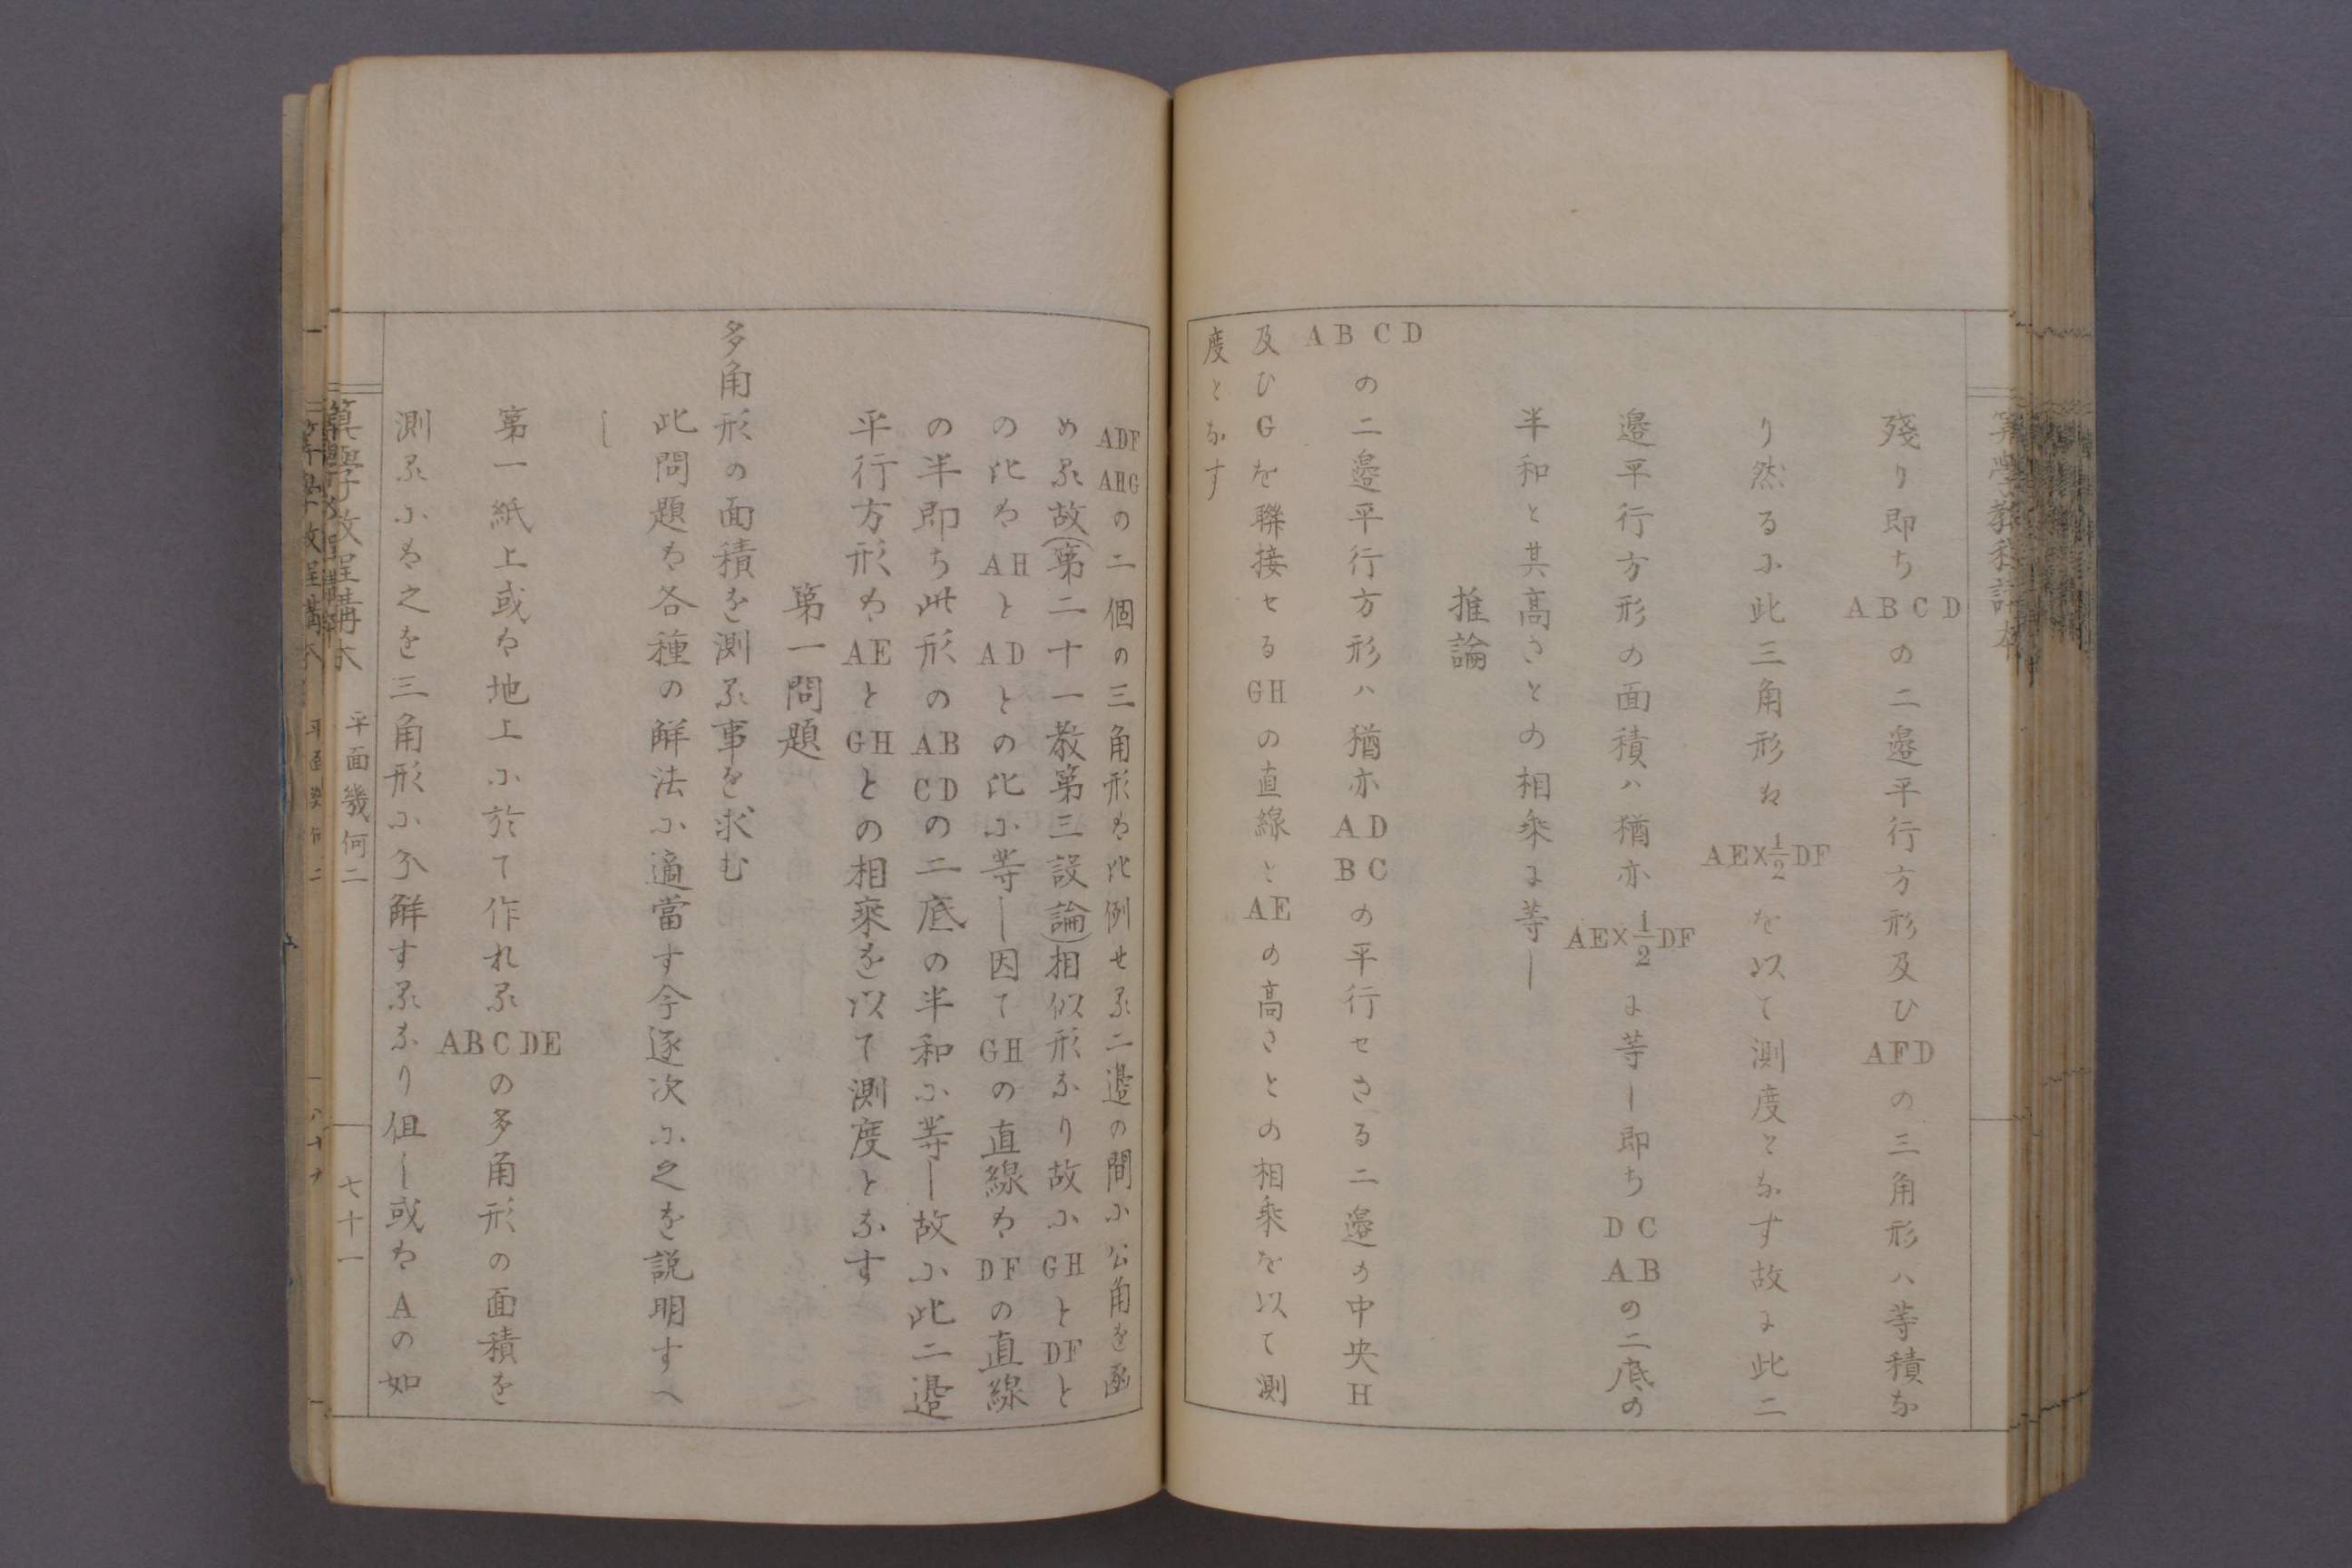 殘り即ちABCDの二邉平行方形及ひAFDの三角形ハ等積な
り然るに此三角形はAE×1/2DFを以て測度となす故に此二
邉平行方形の面積ハ猶亦AE×1/2DFに等し即ちDC ABの二底の
半和と其髙さとの相乗に等し
推論
ABCDの二邉平行方形ハ猶亦AD BCの平行セさる二邉の中央H
及ひGを聯接セるGHの直線とAEの高さとの相乗を以て測
度となす
ADF AHGの二個の三角形は比例せる二邉の間に公角を函
める故(第二十一教第三設論)相似形なり故にGHとDFと
の比はAHとADとの比に等し因てGHの直線はDFの直線
の半即ち此形のAB CDの二底の半和に等し故に此二邉
平行方形はAEとGHとの相乗を以て測度となす
第一問題
多角形の面積を測る事を求む
此問題は各種の觧法に適當す今逐次に之を説明すへ
し
第一紙上或は地上に於て作れるABCDEの多角形の面積を
測るには之を三角形に分觧するなり但し或はAの如
平面幾何二
七十一